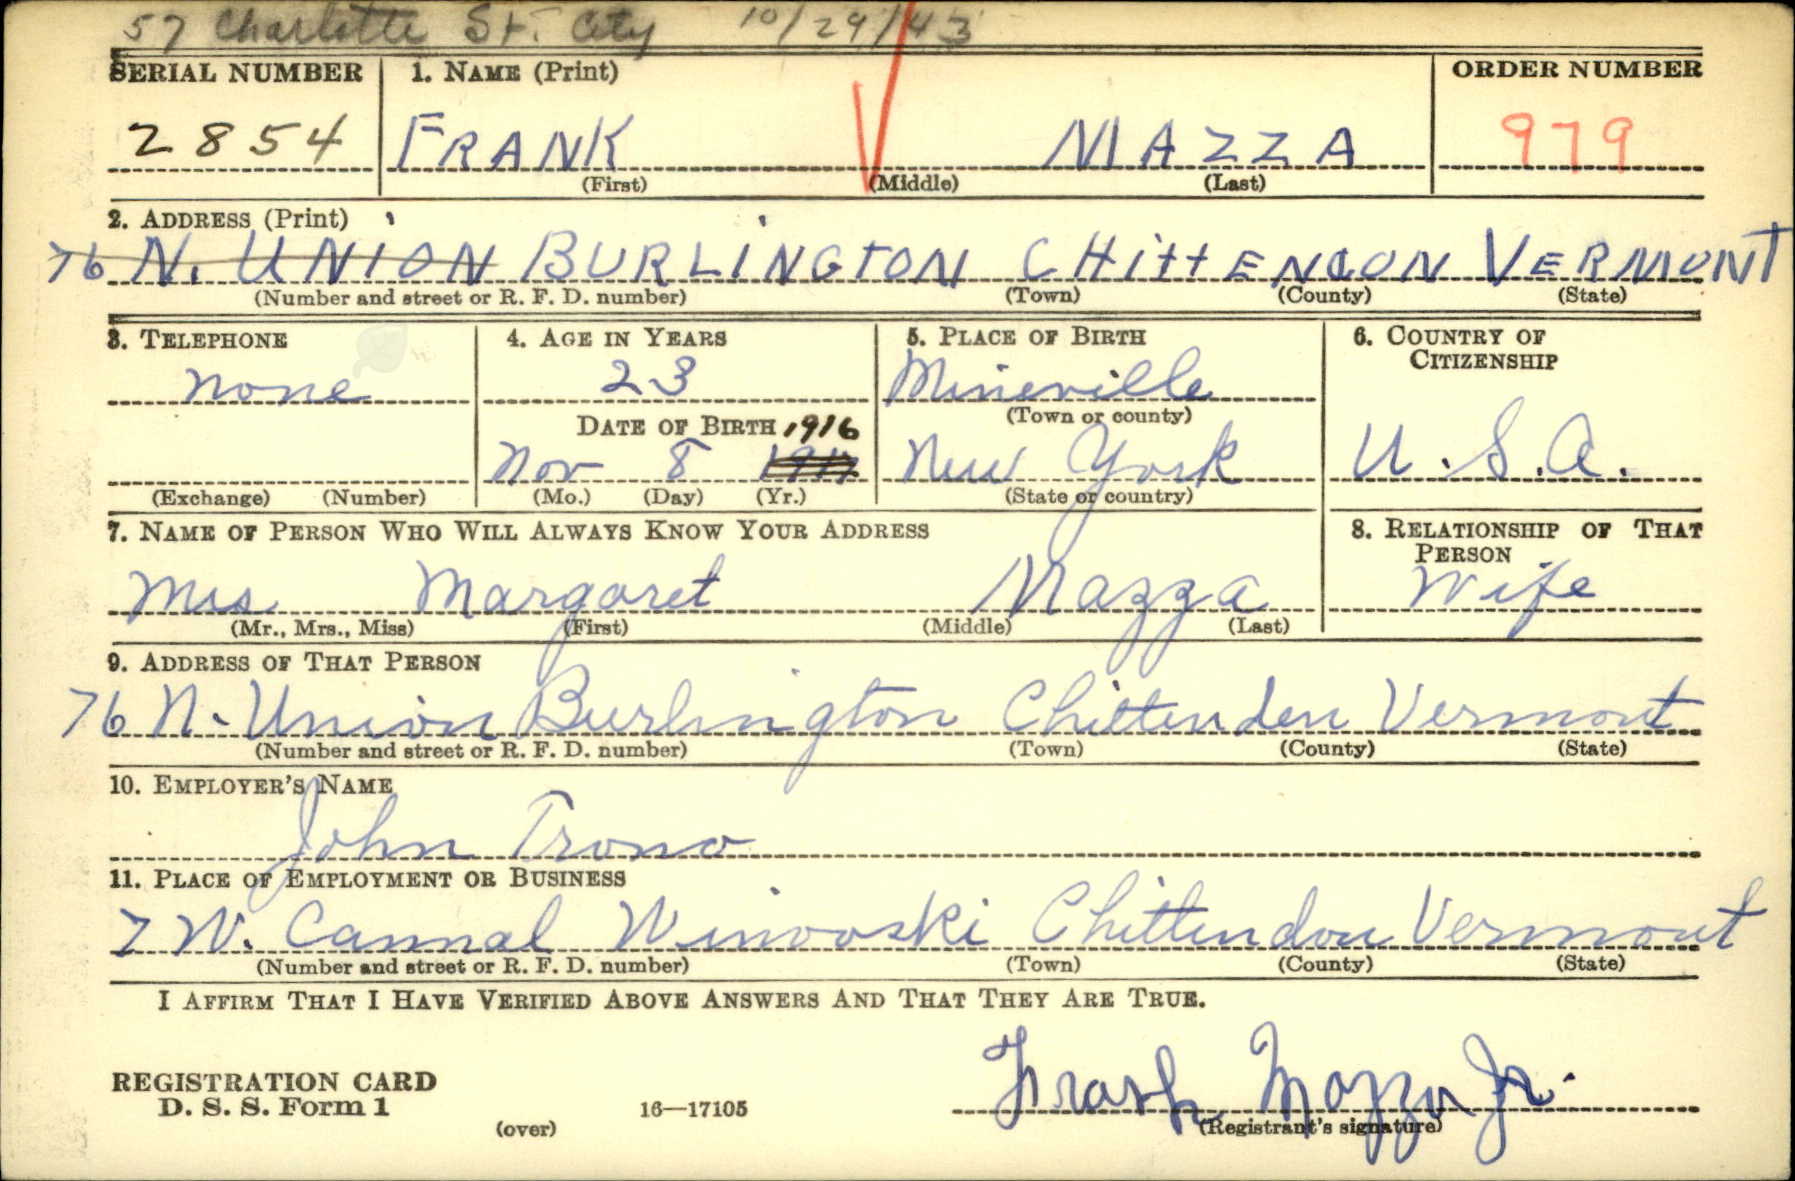 57 Charlotte St. City 10/29/43
SERIAL NUMBER 1. NAME (Print) ORDER NUMBER
2854 FRANK MAZZA 979
(First) (Middle) (Last)
2. ADDRESS (Print)
76 N. UNION BURLINGTON CHITTENDON VERMONT
(Number and street or R. F. D. number) (Town) (County) (State)
3. TELEPHONE 4. AGE IN YEARS 5. PLACE OF BIRTH 6. COUNTRY OF
CITIZENSHIP
none 23 Mineville
(Town or county)
DATE OF BIRTH 1916
Nov 8 New York U.S.A.
(Exchange) (Number) (Mo.) (Day) (Yr.) (State or country)
7. NAME OF PERSON WHO WILL ALWAYS KNOW YOUR ADDRESS 8. RELATIONSHIP OF THAT
PERSON
Mrs Margaret Mazza Wife
(Mr., Mrs., Miss) (First) (Middle) (Last)
9. ADDRESS OF THAT PERSON
76 N. Union Burlington Chittenden Vermont
(Number and street or R. F. D. number) (Town) (County) (State)
10. EMPLOYER'S NAME
John Trono
11. PLACE OF EMPLOYMENT OR BUSINESS
7 W. Cannal Winooski Chittendon Vermont
(Number and street or R. F. D. number) (Town) (County) (State)
I AFFIRM THAT I HAVE VERIFIED ABOVE ANSWERS AND THAT THEY ARE TRUE.
Frank Mazza Jr.
REGISTRATION CARD
D. S. S. Form 1 16—17105 (Registrant's signature)
(over)